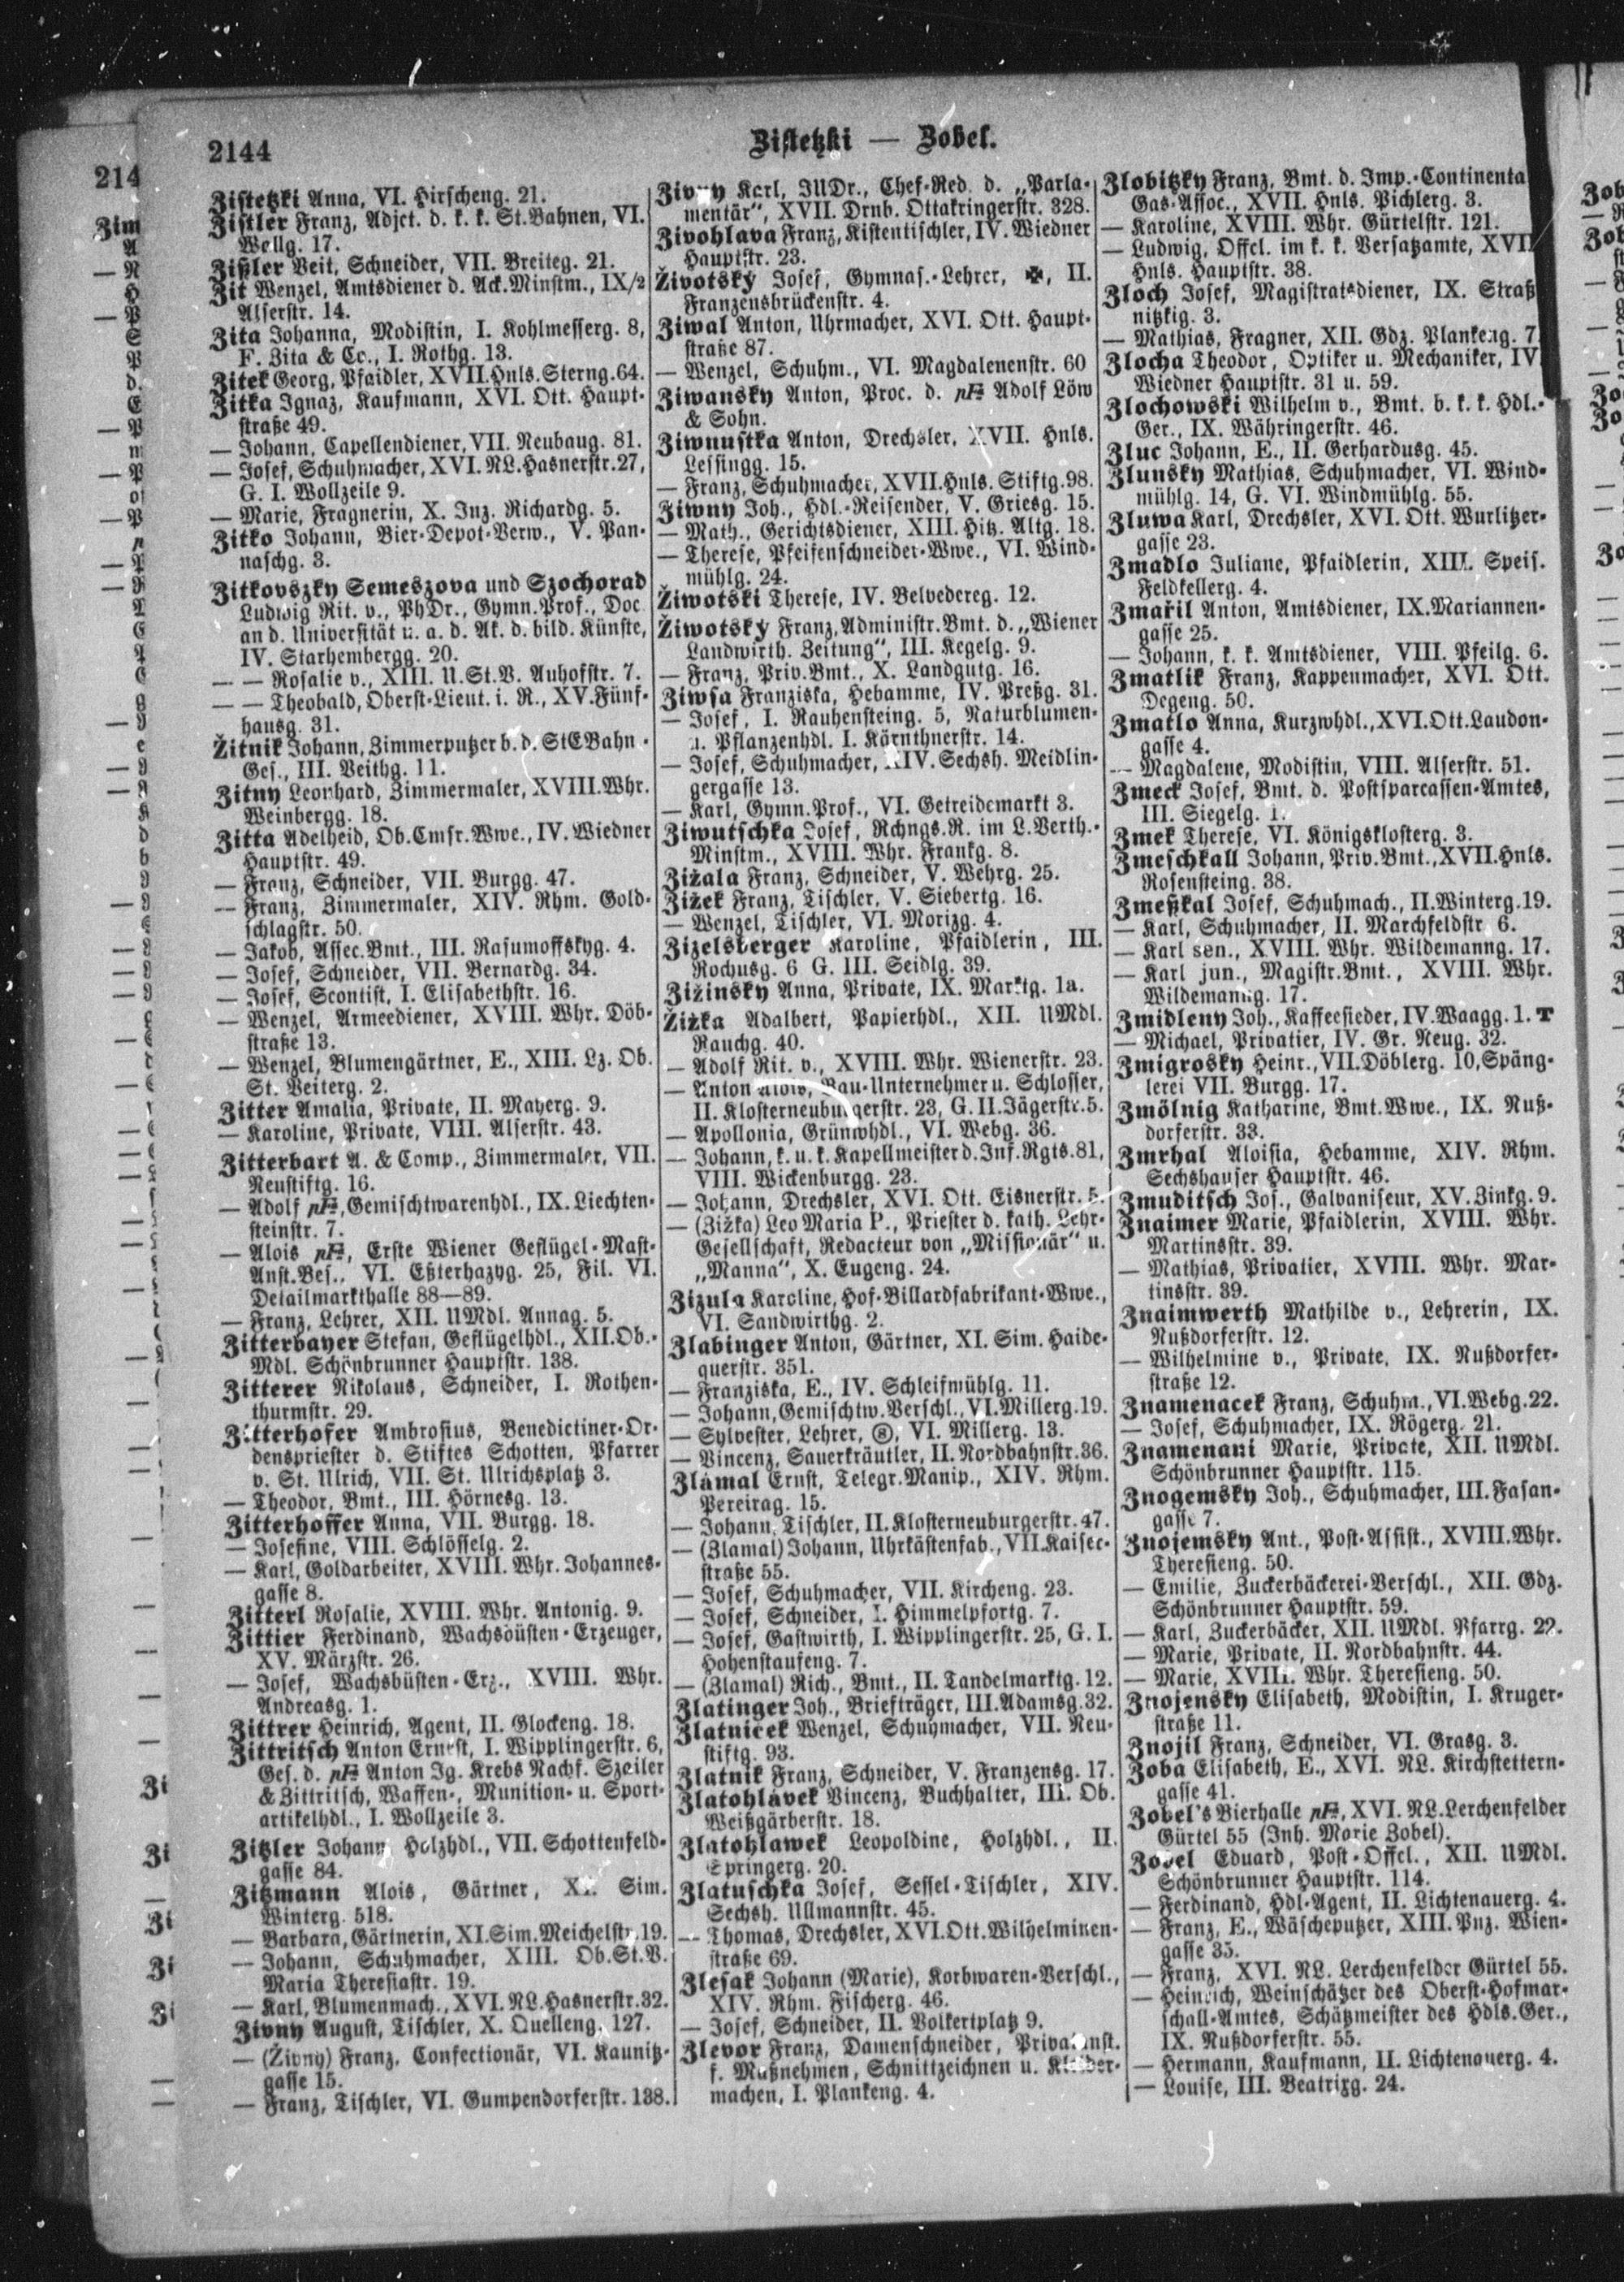 2144
Zistetzki — Zobel.
Zistetzki Anna, VI. Hirscheng. 21.
Zistler Franz, Adjct. d. k. k. St.Bahnen, VI.
Wallg. 17.
Zißler Veit, Schneider, VII. Breiteg. 21.
Zit Wenzel, Amtsdiener d. Ack.Minstm., IX/2
Alserstr. 14.
Zita Johanna, Modistin, I. Kohlmesserg. 8,
F. Zita & Co., I. Rothg. 13.
Zitek Georg, Pfaidler, XVII.Hnls.Sterng.64.
Zitka Ignaz, Kaufmann, XVI. Ott. Haupt-
straße 49.
— Johann, Capellendiener, VII. Neubaug. 81.
— Josef, Schuhmacher, XVI. NL.Hasnerstr.27,
G. I. Wollzeile 9.
— Marie, Fragnerin, X. Inz. Richardg. 5.
Zitko Johann, Bier-Depot-Verw., V. Pan-
naschg. 3.
Zitkovszky Semeszova und Szochorad
Ludwig Rit. v., PhDr., Gymn.Prof., Doc.
an d. Universität u. a. d. Ak. d. bild. Künste,
IV. Starhembergg. 20.
— — Rosalie v., XIII. U.St.V. Auhofstr. 7.
— — Theobald, Oberst-Lieut. i. R., XV.Fünf-
hausg. 31.
Žitnik Johann, Zimmerputzer b. d. StEBahn-
Ges., III. Veithg. 11.
Zitny Leonhard, Zimmermaler, XVIII.Whr.
Weinbergg. 18.
Zitta Adelheid, Ob.Cmsr.Wwe., IV. Wiedner
Hauptstr. 49.
— Franz, Schneider, VII. Burgg. 47.
— Franz, Zimmermaler, XIV. Rhm. Gold-
schlagstr. 50.
— Jakob, Assec.Bmt., III. Rasumoffskyg. 4.
— Josef, Schneider, VII. Bernardg. 34.
— Josef, Scontist, I. Elisabethstr. 16.
— Wenzel, Armeediener, XVIII. Whr. Döb-
straße 13.
— Wenzel, Blumengärtner, E., XIII. Lz. Ob.
St. Veiterg. 2.
Zitter Amalia, Private, II. Mayerg. 9.
— Karoline, Private, VIII. Alserstr. 43.
Zitterbart A. & Comp., Zimmermaler, VII.
Neustiftg. 16.
— Adolf, Gemischtwarenhdl., IX. Liechten-
steinstr. 7.
— Alois, Erste Wiener Geflügel-Mast-
Anst.Bes., VI. Eßterhazyg. 25, Fil. VI.
Detailmarkthalle 88—89.
— Franz, Lehrer, XII. UMdl. Annag. 5.
Zitterbayer Stefan, Geflügelhdl., XII.Ob.-
Mdl. Schönbrunner Hauptstr. 138.
Zitterer Nikolaus, Schneider, I. Rothen-
thurmstr. 29.
Zitterhofer Ambrosius, Benedictiner-Or-
denspriester d. Stiftes Schotten, Pfarrer
v. St. Ulrich, VII. St. Ulrichsplatz 3.
— Theodor, Bmt., III. Hörnesg. 13.
Zitterhoffer Anna, VII. Burgg. 18.
— Josefine, VIII. Schlösselg. 2.
— Karl, Goldarbeiter, XVIII. Whr. Johannes-
gasse 8.
Zitterl Rosalie, XVIII. Whr. Antonig. 9.
Zittier Ferdinand, Wachsbüsten-Erzeuger,
XV. Märzstr. 26.
— Josef, Wachsbüsten-Erz., XVIII. Whr.
Andreasg. 1.
Zittrer Heinrich, Agent, II. Glockeng. 18.
Zittritsch Anton Ernest, I. Wipplingerstr. 6,
Ges. d. Anton Ig. Krebs Nachf. Szailer
& Zittritsch, Waffen-, Munition- u. Sport-
artikelhdl., I. Wollzeile 3.
Zitzler Johann, Holzhdl., VII. Schottenfeld-
gasse 84.
Zitzmann Alois, Gärtner, Sim.
Winterg. 518.
— Barbara, Gärtnerin, XI.Sim.Meichelstr.19.
— Johann, Schuhmacher, XIII. Ob.St.V.
Maria Theresiastr. 19.
— Karl, Blumenmach., XVI. NL.Hasnerstr.32.
Zivny August, Tischler, X. Quelleng. 127.
— (Živny) Franz, Confectionär, VI. Kaunitz-
gasse 15.
— Franz, Tischler, VI. Gumpendorferstr. 138.
Zivny Karl, JUDr., Chef-Red. d. „Parla-
mentär“, XVII. Drnb. Ottakringerstr. 328.
Zivohlava Franz, Kistentischler, IV. Wiedner
Hauptstr. 23.
Životský Josef, Gymnas.-Lehrer, ✠, II.
Franzensbrückenstr. 4.
Ziwal Anton, Uhrmacher, XVI. Ott. Haupt-
straße 87.
— Wenzel, Schuhm., VI. Magdalenenstr. 60
Ziwansky Anton, Proc. d. Adolf Löw
& Sohn.
Ziwnustka Anton, Drechsler, XVII. Hnls.
Lessingg. 15.
— Franz, Schuhmacher, XVII.Hnls. Stiftg.98.
Ziwny Joh., Hdl.-Reisender, V. Griesg. 15.
— Math., Gerichtsdiener, XIII. Hitz. Altg. 18.
— Therese, Pfeifenschneider-Wwe., VI. Wind-
mühlg. 24.
Žiwotski Therese, IV. Belvedereg. 12.
Žiwotský Franz, Administr.Bmt. d. „Wiener
Landwirth. Zeitung“, III. Kegelg. 9.
— Franz, Priv.Bmt., X. Landgutg. 16.
Ziwsa Franziska, Hebamme, IV. Preßg. 31.
— Josef, I. Rauhensteing. 5, Naturblumen-
u. Pflanzenhdl. I. Kärnthnerstr. 14.
— Josef, Schuhmacher, XIV. Sechsh. Meidlin-
gergasse 13.
— Karl, Gymn.Prof., VI. Getreidemarkt 3.
Ziwutschka Josef, Rchngs.R. im L.Verth.-
Minstm., XVIII. Whr. Frankg. 8.
Zižala Franz, Schneider, V. Wehrg. 25.
Zižek Franz, Tischler, V. Siebertg. 16.
— Wenzel, Tischler, VI. Morizg. 4.
Zizelsberger Karoline, Pfaidlerin, III.
Rochusg. 6 G. III. Seidlg. 39.
Zižinsky Anna, Private, IX. Marktg. 1a.
Žižka Adalbert, Papierhdl., XII. UMdl.
Rauchg. 40.
— Adolf Rit. v., XVIII. Whr. Wienerstr. 23.
— Anton Alois, Bau-Unternehmer u. Schlosser,
II. Klosterneuburgerstr. 23, G. II.Jägerstr.5.
— Apollonia, Grünwhdl., VI. Webg. 36.
— Johann, k. u. k. Kapellmeister d. Inf.Rgts.81,
VIII. Wickenburgg. 23.
— Johann, Drechsler, XVI. Ott. Eisnerstr. 5.
— (Zižka) Leo Maria P., Priester d. kath. Lehr-
Gesellschaft, Redacteur von „Missionär“ u.
„Manna“, X. Eugeng. 24.
Zizula Karoline, Hof-Billardfabrikant-Wwe.,
VI. Sandwirthg. 2.
Zlabinger Anton, Gärtner, XI. Sim. Haide-
querstr. 351.
— Franziska, E., IV. Schleifmühlg. 11.
— Johann, Gemischtw.Verschl., VI.Millerg.19.
— Sylvester, Lehrer, VI. Millerg. 13.
— Vincenz, Sauerkräutler, II. Nordbahnstr.36.
Zlámal Ernst, Telegr.Manip., XIV. Rhm.
Pereirag. 15.
— Johann, Tischler, II. Klosterneuburgerstr. 47.
— (Zlamal) Johann, Uhrkästenfab., VII.Kaiser-
straße 55.
— Josef, Schuhmacher, VII. Kircheng. 23.
— Josef, Schneider, I. Himmelpfortg. 7.
— Josef, Gastwirth, I. Wipplingerstr. 25, G. I.
Hohenstaufeng. 7.
— (Zlamal) Rich., Bmt., II. Tandelmarktg. 12.
Zlatinger Joh., Briefträger, III. Adamsg.32.
Zlatnicek Wenzel, Schuhmacher, VII. Neu-
stiftg. 93.
Zlatnik Franz, Schneider, V. Franzensg. 17.
Zlatohlávek Vincenz, Buchhalter, III. Ob.
Weißgärberstr. 18.
Zlatohlawek Leopoldine, Holzhdl., II.
Springerg. 20.
Zlatuschka Josef, Sessel-Tischler, XIV.
Sechsh. Ullmannstr. 45.
— Thomas, Drechsler, XVI.Ott.Wilhelminen-
straße 69.
Zlesak Johann (Marie), Korbwaren-Verschl.,
XIV. Rhm. Fischerg. 46.
— Josef, Schneider, II. Volkertplatz 9.
Zlevor Franz, Damenschneider, Privatanst.
f. Maßnehmen, Schnittzeichnen u. Kleider-
machen, I. Plankeng. 4.
Zlobitzky Franz, Bmt. d. Imp.-Continenta
Gas-Assoc., XVII. Hnls. Pichlerg. 3.
— Karoline, XVIII. Whr. Gürtelstr. 121.
— Ludwig, Offcl. im k. k. Versatzamte, XVII
Hnls. Hauptstr. 38.
Zloch Josef, Magistratsdiener, IX. Straß
nitzkig. 3.
— Mathias, Fragner, XII. Gdz. Plankeng. 7
Zlocha Theodor, Optiker u. Mechaniker, IV
Wiedner Hauptstr. 31 u. 59.
Zlochowski Wilhelm v., Bmt. b. k. k. Hdl.-
Ger., IX. Währingerstr. 46.
Zluc Johann, E., II. Gerhardusg. 45.
Zlunsky Mathias, Schuhmacher, VI. Wind-
mühlg. 14, G. VI. Windmühlg. 55.
Zluwa Karl, Drechsler, XVI. Ott. Wurlitzer-
gasse 23.
Zmadlo Juliane, Pfaidlerin, XIII. Speis.
Feldkellerg. 4.
Zmařil Anton, Amtsdiener, IX.Mariannen-
gasse 25.
— Johann, k. k. Amtsdiener, VIII. Pfeilg. 6.
Zmatlik Franz, Kappenmacher, XVI. Ott.
Degeng. 50.
Zmatlo Anna, Kurzwhdl., XVI.Ott.Laudon-
gasse 4.
— Magdalene, Modistin, VIII. Alserstr. 51.
Zmeck Josef, Bmt. d. Postsparcassen-Amtes,
III. Siegelg. 1.
Zmek Therese, VI. Königsklosterg. 3.
Zmeschkall Johann, Priv.Bmt., XVII.Hnls.
Rosensteing. 38.
Zmeßkal Josef, Schuhmach., II.Winterg.19.
— Karl, Schuhmacher, II. Marchfeldstr. 6.
— Karl sen., XVIII. Whr. Wildemanng. 17.
— Karl jun., Magistr.Bmt., XVIII. Whr.
Wildemanng. 17.
Zmidleny Joh., Kaffeesieder, IV.Waagg. 1. T
— Michael, Privatier, IV. Gr. Neug. 32.
Zmigrosky Heinr., VII.Döblerg. 10, Späng-
lerei VII. Burgg. 17.
Zmölnig Katharine, Bmt.Wwe., IX. Nuß-
dorferstr. 33.
Zmrhal Aloisia, Hebamme, XIV. Rhm.
Sechshauser Hauptstr. 46.
Zmuditsch Jos., Galvaniseur, XV. Zinkg. 9.
Znaimer Marie, Pfaidlerin, XVIII. Whr.
Martinsstr. 39.
— Mathias, Privatier, XVIII. Whr. Mar-
tinsstr. 39.
Znaimwerth Mathilde v., Lehrerin, IX.
Nußdorferstr. 12.
— Wilhelmine v., Private, IX. Nußdorfer-
straße 12.
Znamenacek Franz, Schuhm., VI.Webg.22.
— Josef, Schuhmacher, IX. Rögerg. 21.
Znamenani Marie, Private, XII. UMdl.
Schönbrunner Hauptstr. 115.
Znogemsky Joh., Schuhmacher, III. Fasan-
gasse 7.
Znojemsky Ant., Post-Assist., XVIII.Whr.
Theresieng. 50.
— Emilie, Zuckerbäckerei-Verschl., XII. Gdz.
Schönbrunner Hauptstr. 59.
— Karl, Zuckerbäcker, XII. UMdl. Pfarrg. 22.
— Marie, Private, II. Nordbahnstr. 44.
— Marie, XVIII. Whr. Theresieng. 50.
Znojensky Elisabeth, Modistin, I. Kruger-
straße 11.
Znojil Franz, Schneider, VI. Grasg. 3.
Zoba Elisabeth, E., XVI. NL. Kirchstettern-
gasse 41.
Zobel's Bierhalle, XVI. NL.Lerchenfelder
Gürtel 55 (Inh. Marie Zobel).
Zobel Eduard, Post-Offcl., XII. UMdl.
Schönbrunner Hauptstr. 114.
— Ferdinand, Hdl-Agent, II. Lichtenauerg. 4.
— Franz, E., Wäscheputzer, XIII. Pnz. Wien-
gasse 35.
— Franz, XVI. NL. Lerchenfelder Gürtel 55.
— Heinrich, Weinschätzer des Oberst-Hofmar-
schall-Amtes, Schätzmeister des Hdls.Ger.,
IX. Nußdorferstr. 55.
— Hermann, Kaufmann, II. Lichtenauerg. 4.
— Louise, III. Beatrixg. 24.